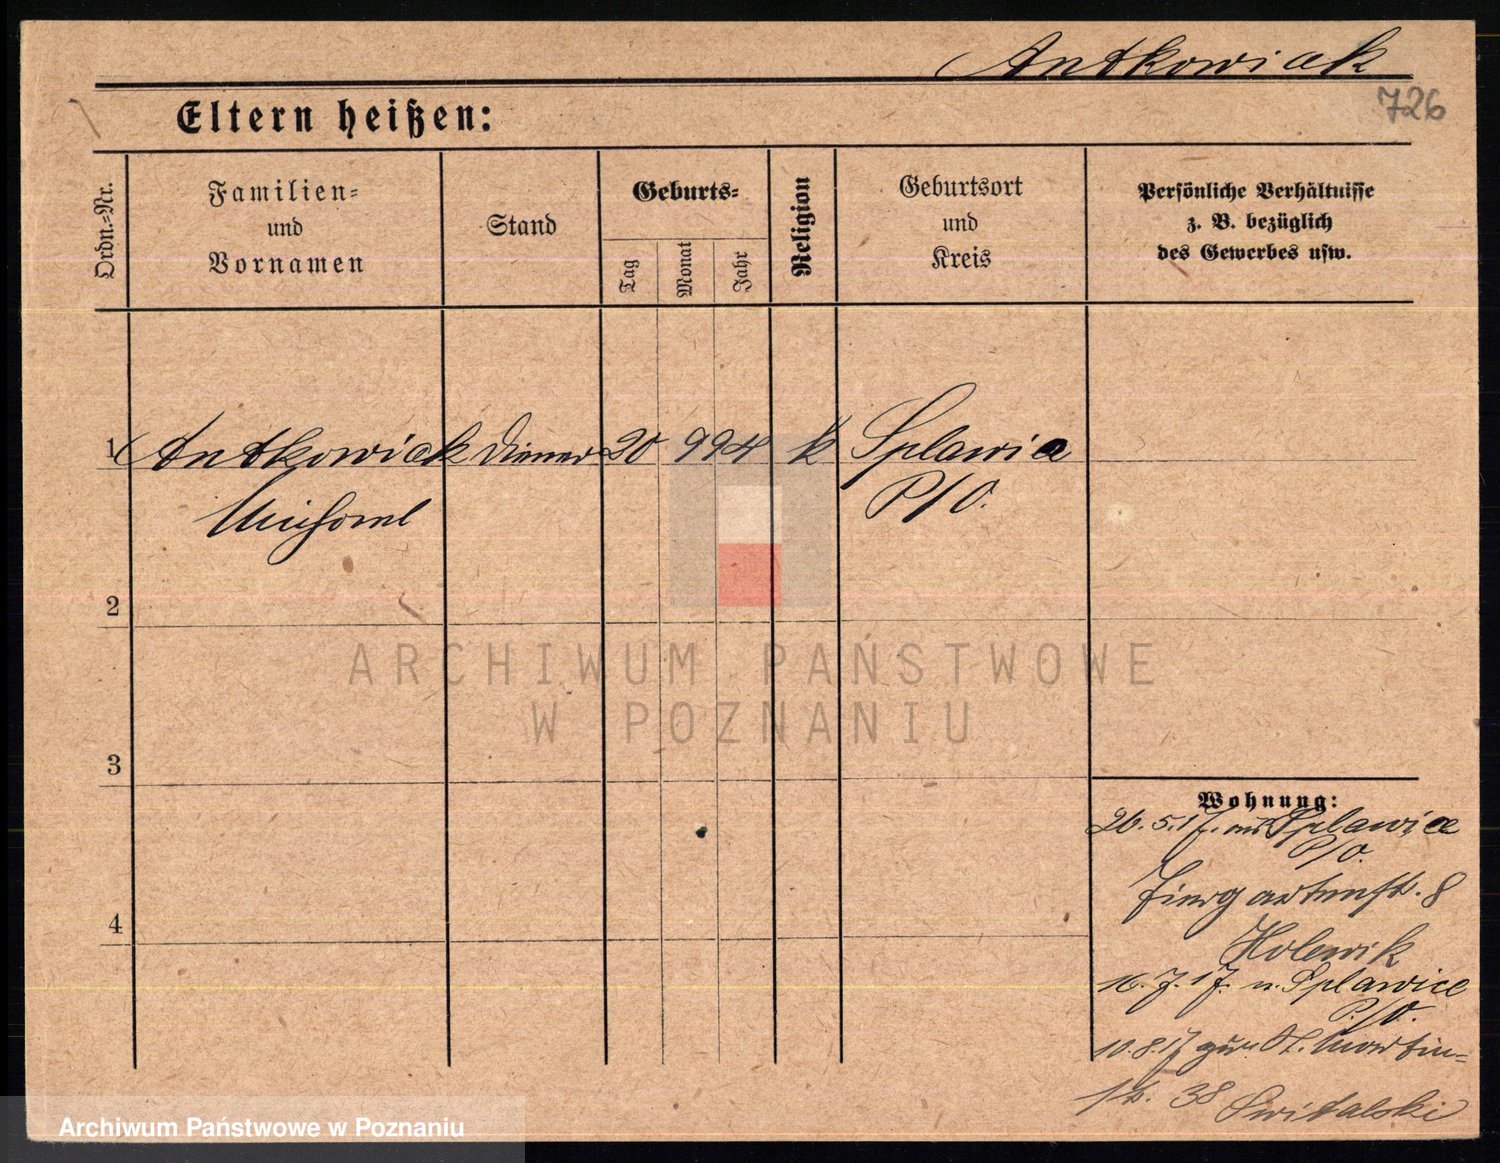 Antkowiak
726
Eltern heißen:
Ordn.-Nr.
Familien-
und
Vornamen
Stand
Geburts-
Tag
Monat
Jahr
Religion
Geburtsort
und
Kreis
Persönliche Verhältnisse
z. B. bezüglich
des Gewerbes usw.
1 Antkowiak Diener 20 9 94 k Splawie
Michael P/O.
2
3
4
Wohnung:
26.5.17. aus Splawie
P/O.
Tiergartenstr. 8
Holewik
16.7.17. n. Splawice
P./O.
10.8.17 zur. St. Martin-
str. 38 Switalski
ARCHIWUM PAŃSTWOWE
W POZNANIU
Archiwum Państwowe w Poznaniu